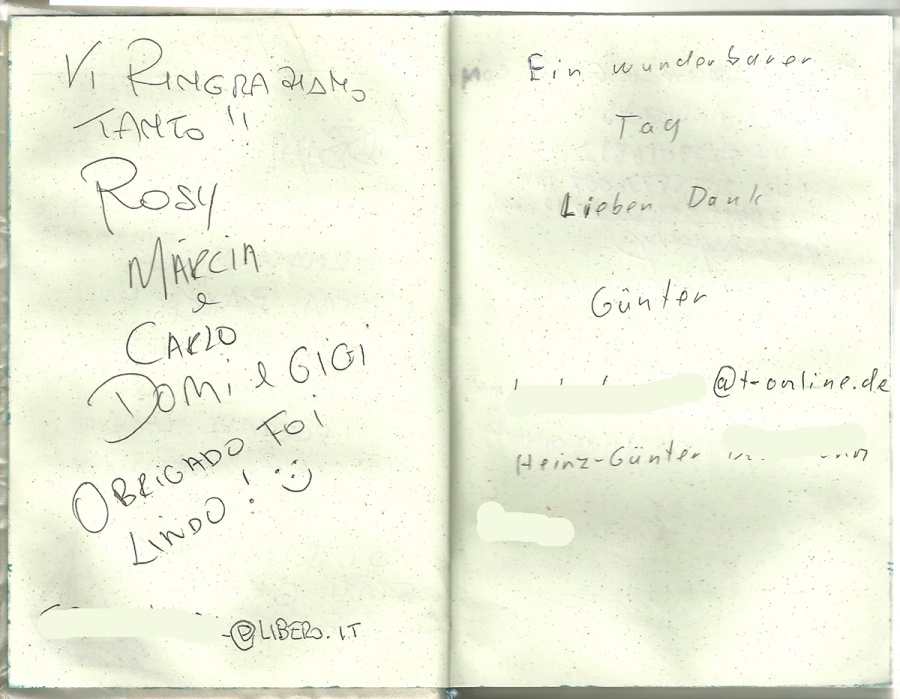 VI RINGRAZIAMO
TANTO !!
ROSY
MÁRCIA
e
CARLO
DOMI e GIGI
OBRIGADO FOI
LINDO! :)
@LIBERO.IT
Ein wunderbarer
Tag
Lieben Dank
Günter
@t-online.de
Heinz-Günter